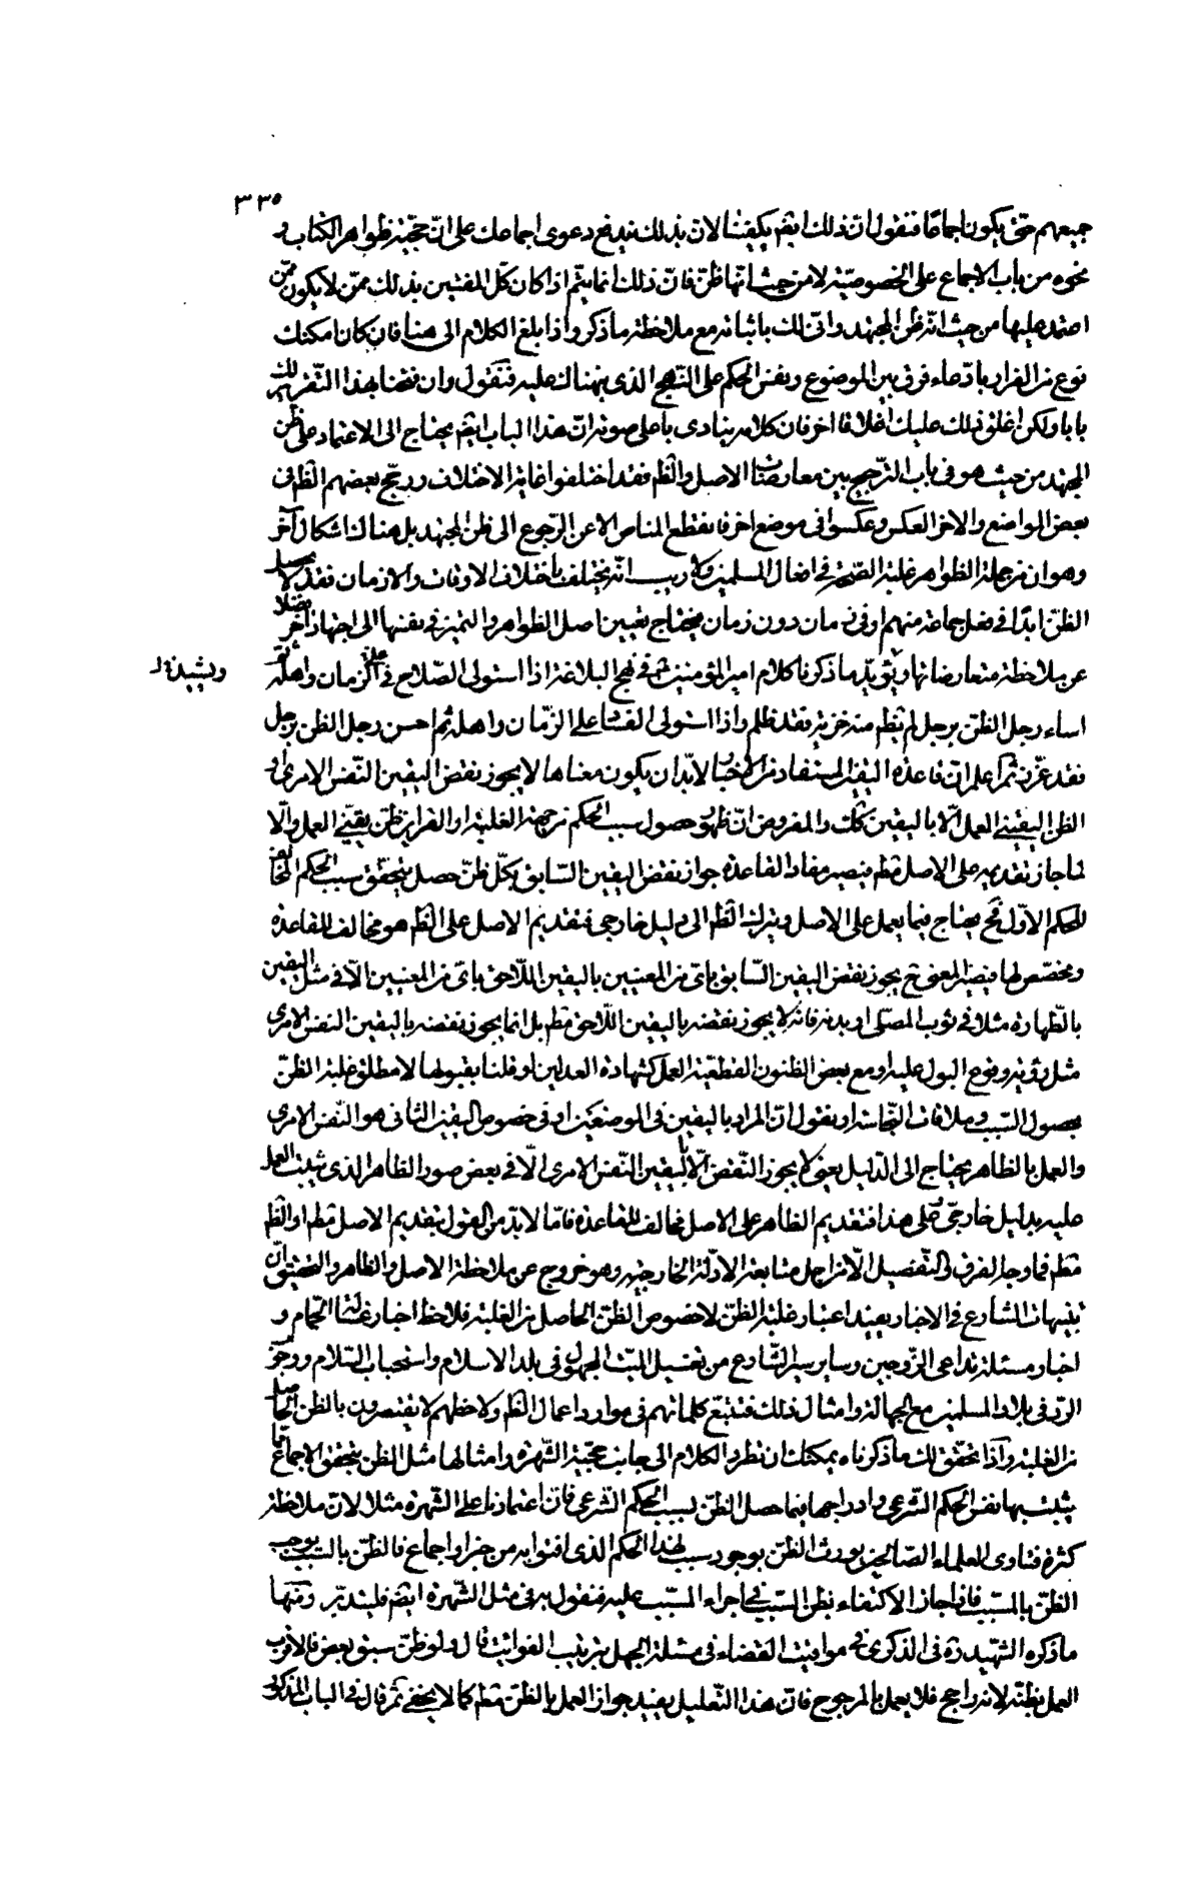 ٣٣٥
جميعهم حتى يكون اجماعا فنقول ان ذلك ايضا يكفينا لان بذلك يندفع دعوى اجماعك على ان حجية ظواهر الكتاب و
نحوه من باب الاجماع على الخصوصية لا من حيث انها ظن فان ذلك انما يتم اذا كان كل المفتين بذلك ممن لا يكون ممن
اعتمد عليها من حيث انه ظن المجتهد وانى لك باثباته مع ملاحظة ما ذكر واذا بلغ الكلام الى هنا فان كان امكنك
نوع من الفرار بادعاء فرق بين الموضوع ونفس الحكم على النهج الذى نبهناك عليه فنقول وان فتحنا بهذا التقرير لك
بابا ولكن اغلق ذلك عليك اغلاقا اخر فان كلامهم ينادى باعلى صوته ان هذا الباب ايضا يحتاج الى الاعتماد على ظن
المجتهد من حيث هو فى باب الترجيح بين معارضات الاصل والظم فقد اختلفوا غاية الاختلاف ورجح بعضهم الظم فى
بعض المواضع والاخر العكس وعكسوا فى موضع اخر فانقطع المناص الا عن الرجوع الى ظن المجتهد بل هناك اشكال آخر
وهو ان من جملة الظواهر غلبة الصحة فى افعال المسلمين ولا ريب انه يختلف باختلاف الاوقات والازمان فقد لا يحصل
الظن ابدا فى فعل جماعة منهم او فى زمان دون زمان فيحتاج تعيين اصل الظواهر والتميز فى نفسها الى اجتهاد آخر فضلا
عن ملاحظة متعارضاتها ويؤيد ما ذكرنا كلام امير المؤمنين ع فى نهج البلاغة اذا استولى الصلاح على الزمان واهله ثم
ويشيدة لـ
اساء رجل الظن برجل لم يظهر منه خزية فقد ظلم واذا استولى الفساد على الزمان واهله ثم احسن رجل الظن برجل
فقد غرر ثم اعلم ان قاعدة اليقين المستفاد من الاخبار لا بد ان يكون معناها لا يجوز نقض اليقين النفس الامرى او
الظن اليقينى العمل الا باليقين كك والمفروض ان ظهور حصول سبب الحكم من جهة الغلبة او القراين ظن يقينى العمل والا
لما جاز تقديمه على الاصل قطم فيصير مفاد القاعدة جواز نقض اليقين السابق بكل ظن حصل بتحقق سبب الحكم المخالف
للحكم الاول فح يحتاج فيما يعمل على الاصل ويترك الظم الى دليل خارجى فتقديم الاصل على الظم هو مخالف للقاعدة
ومخصص لها فيصير المعنى ح يجوز نقض اليقين السابق باى من المعنيين باليقين اللاحق باى من المعنيين الا فى مثل اليقين
بالطهارة مثلا فى ثوب المصلى او بدنه فانه لا يجوز نقضه باليقين اللاحق قطم بل انما يجوز نقضه باليقين النفس الامرى
مثل رؤية وقوع البول عليه او مع بعض الظنون القطعية العمل كشهادة العدلين او قلنا بقبولها لا مطلق غلبة الظن
بحصول السبب وملاقات النجاسة او نقول ان المراد باليقين فى الموضعين او فى خصوص اليقين الثانى هو النفس الامرى
والعمل بالظاهر يحتاج الى الدليل يعنى لا يجوز النقض الا باليقين النفس الامرى الا فى بعض صور الظاهر الذى ثبت العمل
عليه بدليل خارجى فعلى هذا فتقديم الظاهر على الاصل مخالف للقاعدة فاما لا بد من القول بتقديم الاصل قطم او الظم
قطم فما وجه الفرق والتفصيل الا من اجل متابعة الادلة الخارجية وهو خروج عن ملاحظة الاصل والظاهر والتحقيق ان
تنبيهات الشارع فى الاخبار يفيد اعتبار غلبة الظن لا خصوص الظن الحاصل من الغلبة فلاحظ اخبار غسالة الحمام و
اخبار مسئلة تداعى الزوجين وساير سير الشارع من تغسيل الميت المجهول فى بلد الاسلام واستحباب السلام ووجوب
الرد فى بلاد المسلمين مع الجهالة وامثال ذلك فتتبع كلماتهم فى موارد اعمال الظم ولاحظهم لا يقتصرون بالظن الحاصل
من الغلبة واذا تحقق لك ما ذكرناه يمكنك ان تطرد الكلام الى جانب حجية الشهرة وامثالها مثل الظن بتحقق الاجماع فيما
يثبت بها نفس الحكم الشرعى وادراجها فيما حصل الظن لسبب الحكم الشرعى فان اعتمادنا على الشهرة مثلا لان ملاحظة
كثرة فتاوى العلماء الصالحين يورث الظن بوجود سبب لهذا الحكم الذى افتوا به من خبر او اجماع فالظن بالسبب يوجب
الظن بالمسبب فاذا جاز الاكتفاء بظن السبب فى اجراء المسبب عليه فنقول به فى مثل الشهرة ايضا فليتدبر ومنها
ما ذكره الشهيد ره فى الذكرى فى مواقيت القضاء فى مسئلة الجهل بترتيب الفوائت قال ولو ظن سبق بعض فالاقرب
العمل بظنه لانه راجح فلا يعمل بالمرجوح فان هذا التعليل يفيد جواز العمل بالظن قطم كما لا يخفى ثم قال فى الباب المذكور